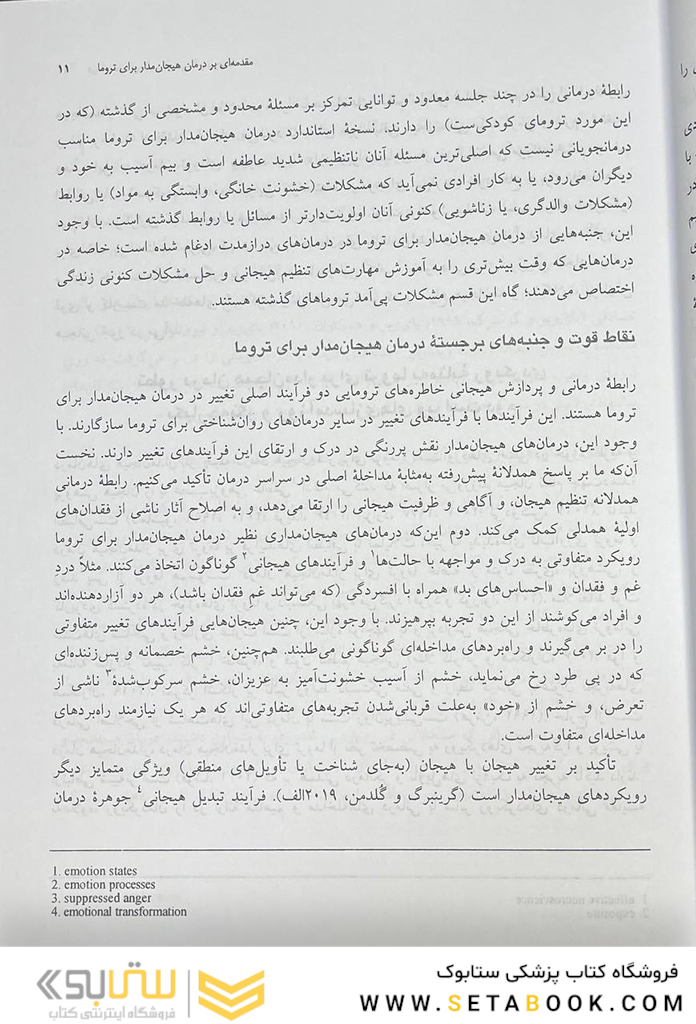 مقدمه‌ای بر درمان هیجان‌مدار برای تروما ۱۱
رابطهٔ درمانی را در چند جلسه معدود و توانایی تمرکز بر مسئلهٔ محدود و مشخصی از گذشته (که در
این مورد ترومای کودکی‌ست) را دارند. نسخهٔ استاندارد درمان هیجان‌مدار برای تروما مناسب
درمانجویانی نیست که اصلی‌ترین مسئله آنان ناتنظیمی شدید عاطفه است و بیم آسیب به خود و
دیگران می‌رود، یا به کار افرادی نمی‌آید که مشکلات (خشونت خانگی، وابستگی به مواد) یا روابط
(مشکلات والدگری، یا زناشویی) کنونی آنان اولویت‌دارتر از مسائل یا روابط گذشته است. با وجود
این، جنبه‌هایی از درمان هیجان‌مدار برای تروما در درمان‌های درازمدت ادغام شده است؛ خاصه در
درمان‌هایی که وقت بیش‌تری را به آموزش مهارت‌های تنظیم هیجانی و حل مشکلات کنونی زندگی
اختصاص می‌دهند؛ گاه این قسم مشکلات پی‌آمد تروماهای گذشته هستند.
نقاط قوت و جنبه‌های برجستهٔ درمان هیجان‌مدار برای تروما
رابطهٔ درمانی و پردازش هیجانی خاطره‌های ترومایی دو فرآیند اصلی تغییر در درمان هیجان‌مدار برای
تروما هستند. این فرآیندها با فرآیندهای تغییر در سایر درمان‌های روان‌شناختی برای تروما سازگارند. با
وجود این، درمان‌های هیجان‌مدار نقش پررنگی در درک و ارتقای این فرآیندهای تغییر دارند. نخست
آن‌که ما بر پاسخ همدلانهٔ پیش‌رفته به‌مثابهٔ مداخلهٔ اصلی در سراسر درمان تأکید می‌کنیم. رابطهٔ درمانی
همدلانه تنظیم هیجان، و آگاهی و ظرفیت هیجانی را ارتقا می‌دهد، و به اصلاح آثار ناشی از فقدان‌های
اولیهٔ همدلی کمک می‌کند. دوم این‌که درمان‌های هیجان‌مداری نظیر درمان هیجان‌مدار برای تروما
رویکرد متفاوتی به درک و مواجهه با حالت‌ها۱ و فرآیندهای هیجانی۲ گوناگون اتخاذ می‌کنند. مثلاً دردِ
غم و فقدان و «احساس‌های بد» همراه با افسردگی (که می‌تواند غمِ فقدان باشد)، هر دو آزاردهنده‌اند
و افراد می‌کوشند از این دو تجربه بپرهیزند. با وجود این، چنین هیجان‌هایی فرآیندهای تغییر متفاوتی
را در بر می‌گیرند و راه‌بردهای مداخله‌ای گوناگونی می‌طلبند. هم‌چنین، خشم خصمانه و پس‌زننده‌ای
که در پی طرد رخ می‌نماید، خشم از آسیب خشونت‌آمیز به عزیزان، خشم سرکوب‌شدهٔ۳ ناشی از
تعرض، و خشم از «خود» به‌علت قربانی‌شدن تجربه‌های متفاوتی‌اند که هر یک نیازمند راه‌بردهای
مداخله‌ای متفاوت است.
تأکید بر تغییر هیجان با هیجان (به‌جای شناخت یا تأویل‌های منطقی) ویژگی متمایز دیگر
رویکردهای هیجان‌مدار است (گرینبرگ و گُلدمن، ۲۰۱۹الف). فرآیند تبدیل هیجانی۴ جوهرهٔ درمان
1. emotion states
2. emotion processes
3. suppressed anger
4. emotional transformation
فروشگاه کتاب پزشکی ستابوک
WWW.SETABOOK.COM
ستابوک
فروشگاه اینترنتی کتاب